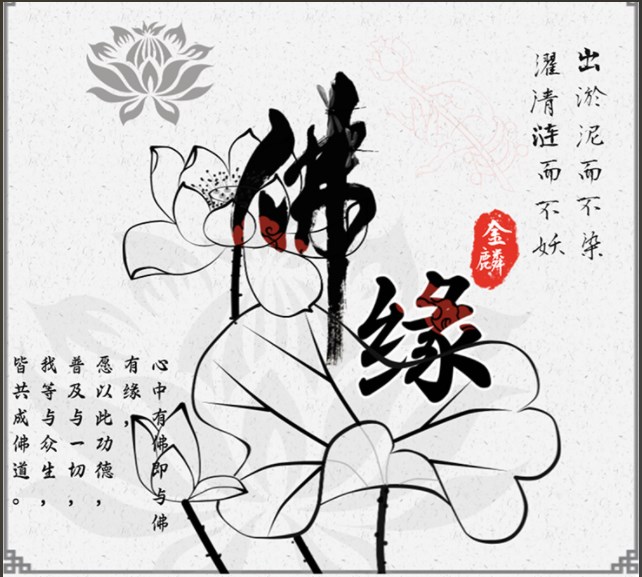 出淤泥而不染
濯清涟而不妖
佛缘
金麟
心中有佛即与佛
有缘，
愿以此功德，
普及与一切，
我等与众生，
皆共成佛道。